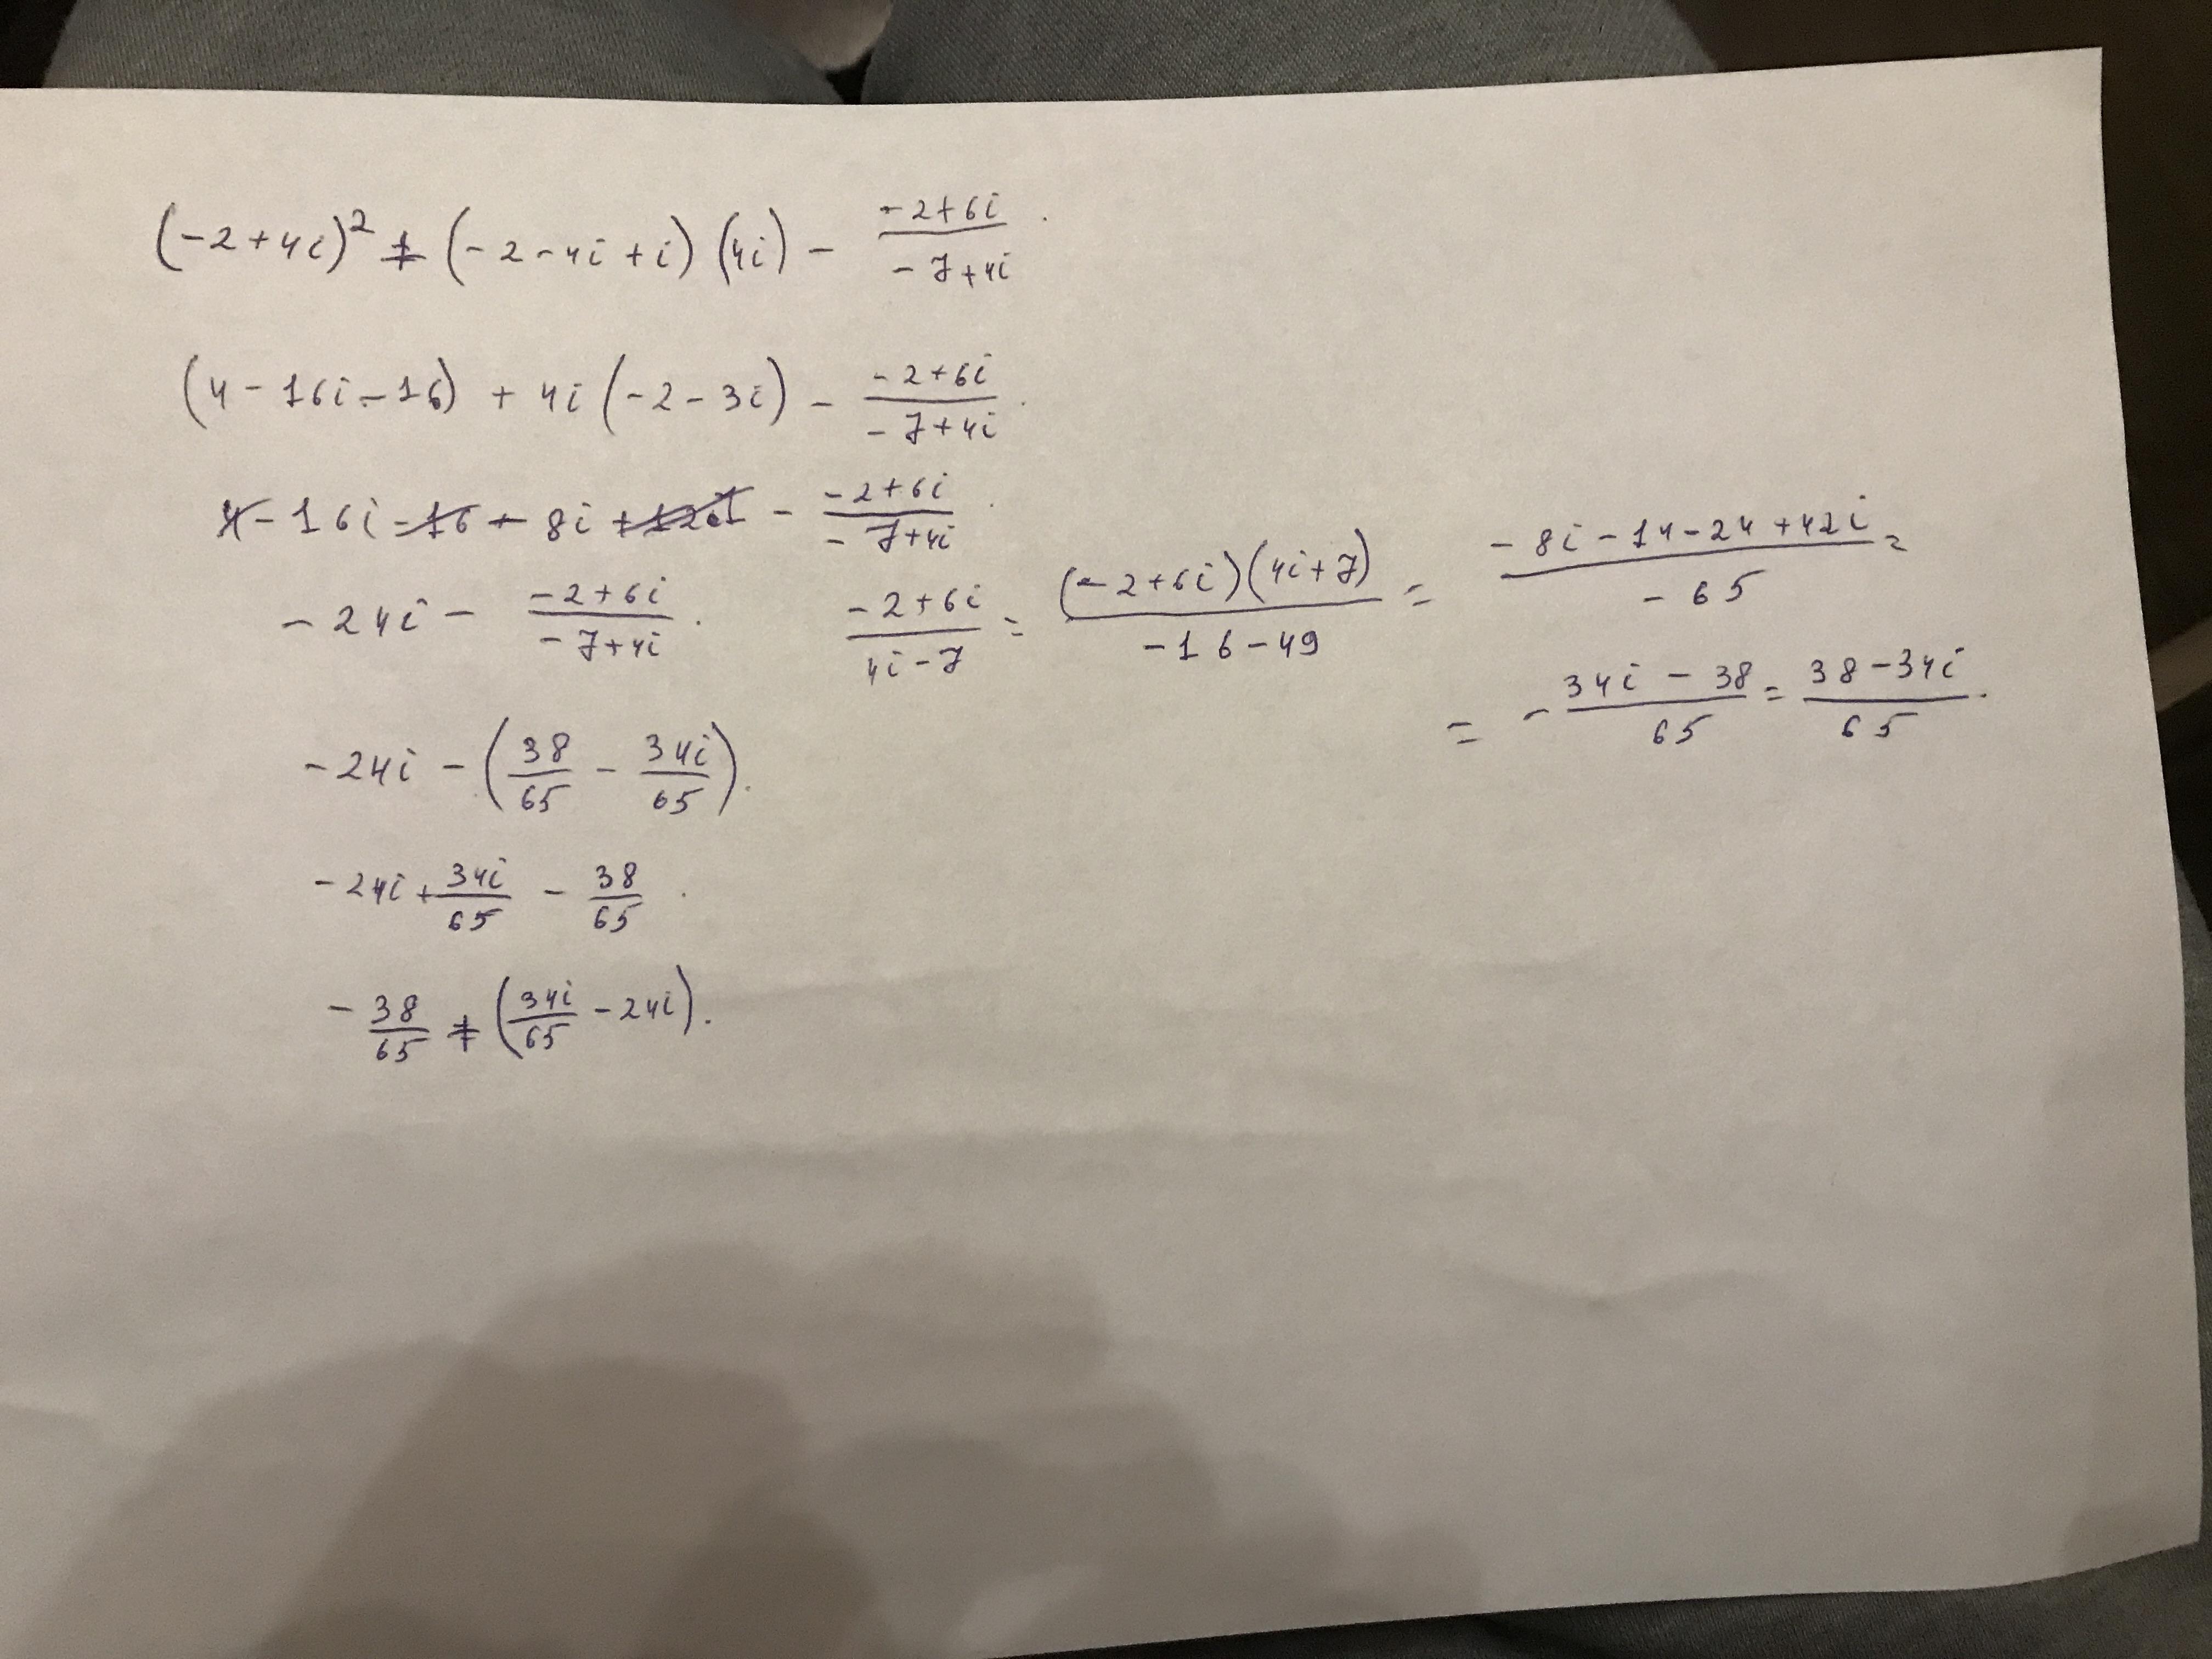 (-2+4i)² + (-2-4i+i)(4i) - (-2+6i)/(-7+4i).
(4-16i-16) + 4i(-2-3i) - (-2+6i)/(-7+4i).
4-16i-16-8i+12 - (-2+6i)/(-7+4i).
-24i - (-2+6i)/(-7+4i). (-2+6i)/(4i-7) = ((-2+6i)(4i+7))/(-16-49) = (-8i-14-24+42i)/(-65) =
= -(34i-38)/65 = (38-34i)/65.
-24i - (38/65 - 34i/65).
-24i + 34i/65 - 38/65.
-38/65 + (34i/65 - 24i).